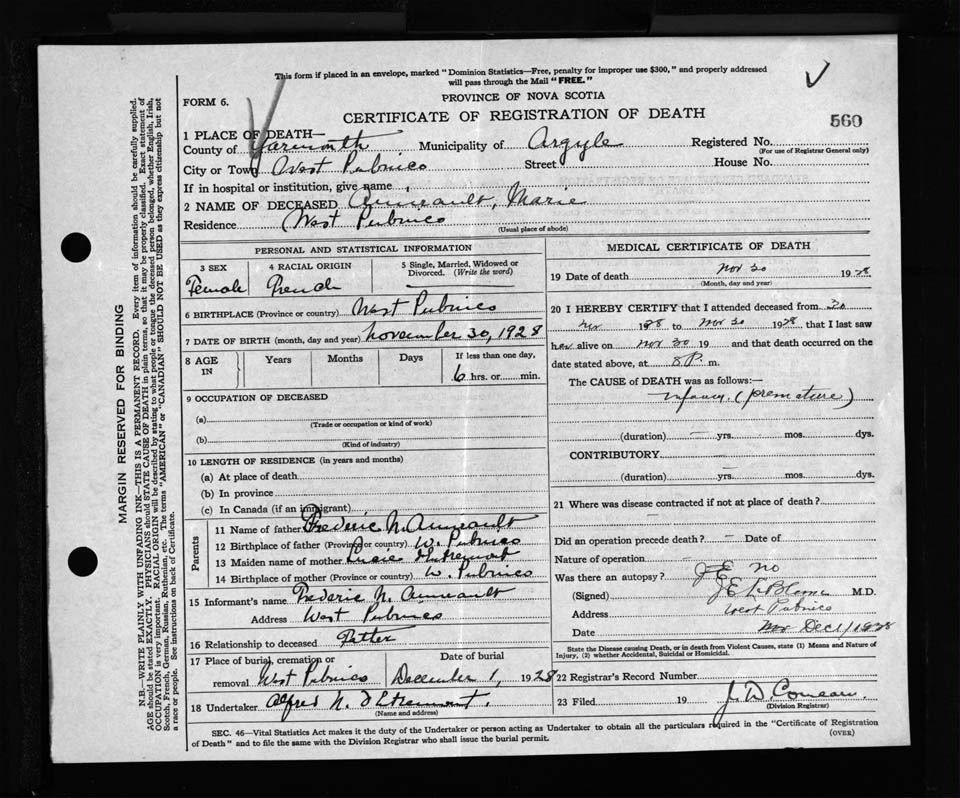 This form if placed in an envelope, marked "Dominion Statistics—Free, penalty for improper use $300," and properly addressed
will pass through the Mail "FREE."
PROVINCE OF NOVA SCOTIA
FORM 6.
CERTIFICATE OF REGISTRATION OF DEATH
560
1 PLACE OF DEATH—
County of Yarmouth Municipality of Argyle Registered No.
(For use of Registrar General only)
City or Town West Pubnico Street House No.
If in hospital or institution, give name
2 NAME OF DECEASED Amireault, Marie
Residence West Pubnico
(Usual place of abode)
PERSONAL AND STATISTICAL INFORMATION
3 SEX 4 RACIAL ORIGIN 5 Single, Married, Widowed or Divorced. (Write the word)
Female French
6 BIRTHPLACE (Province or country) West Pubnico
7 DATE OF BIRTH (month, day and year) November 30, 1928
8 AGE IN Years Months Days If less than one day,
6 hrs. or min.
9 OCCUPATION OF DECEASED
(a)
(Trade or occupation or kind of work)
(b)
(Kind of industry)
10 LENGTH OF RESIDENCE (in years and months)
(a) At place of death
(b) In province
(c) In Canada (if an immigrant)
Parents
11 Name of father Frederic N. Amireault
12 Birthplace of father (Province or country) W. Pubnico
13 Maiden name of mother Lucie d'Entremont
14 Birthplace of mother (Province or country) W. Pubnico
15 Informant's name Frederic N. Amireault
Address West Pubnico
16 Relationship to deceased
17 Place of burial, cremation or Date of burial
removal West Pubnico December 1, 1928
18 Undertaker Alfred N. d'Entremont.
(Name and address)
MEDICAL CERTIFICATE OF DEATH
19 Date of death Nov 30 1928
(Month, day and year)
20 I HEREBY CERTIFY that I attended deceased from 30
Nov 1928 to Nov 30 1928 that I last saw
her alive on Nov 30 19 and that death occurred on the
date stated above, at 8 P. m.
The CAUSE OF DEATH was as follows:—
Infancy (premature)
(duration) yrs. mos. dys.
CONTRIBUTORY
(duration) yrs. mos. dys.
21 Where was disease contracted if not at place of death?
Did an operation precede death? – Date of
Nature of operation
Was there an autopsy? no
(Signed) J E LeBlanc M.D.
Address West Pubnico
Date Dec 1/1928
State the Disease causing Death, or in death from Violent Causes, state (1) Means and Nature of
Injury, (2) whether Accidental, Suicidal or Homicidal.
22 Registrar's Record Number
23 Filed 19 J. D. Comeau
(Division Registrar)
SEC. 46—Vital Statistics Act makes it the duty of the Undertaker or person acting as Undertaker to obtain all the particulars required in the "Certificate of Registration
of Death" and to file the same with the Division Registrar who shall issue the burial permit. (OVER)
MARGIN RESERVED FOR BINDING
N.B.—WRITE PLAINLY WITH UNFADING INK—THIS IS A PERMANENT RECORD. Every item of information should be carefully supplied.
AGE should be stated EXACTLY. PHYSICIANS should STATE CAUSE OF DEATH in plain terms, so that it may be properly classified. Exact statement of
OCCUPATION is very important. RACIAL ORIGIN will be described by stating to what people or tongue the deceased person belonged, whether English, Irish,
Scotch, French, German, Russian, Ruthenian, etc. The terms "AMERICAN" or "CANADIAN" SHOULD NOT BE USED as they express citizenship but not
a race or people. See instructions on back of Certificate.